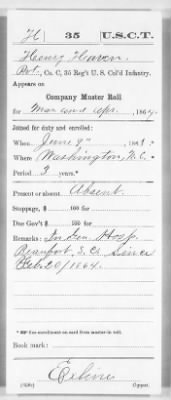 H 35 U.S.C.T.
Henry Haven
Pvt., Co. C, 35 Reg't U. S. Col'd Infantry.
Appears on
Company Muster Roll
for Mar and Apr., 1864.
Joined for duty and enrolled:
When June 9", 1863.
Where Washington, N.C.
Period 3 years.*
Present or absent Absent
Stoppage, $ 100 for
Due Gov't $ 100 for
Remarks: In Gen Hosp
Beaufort, S. C. since
Feb. 20/1864.
* See enrollment on card from muster-in roll.
Book mark:
(858c) Copyist.